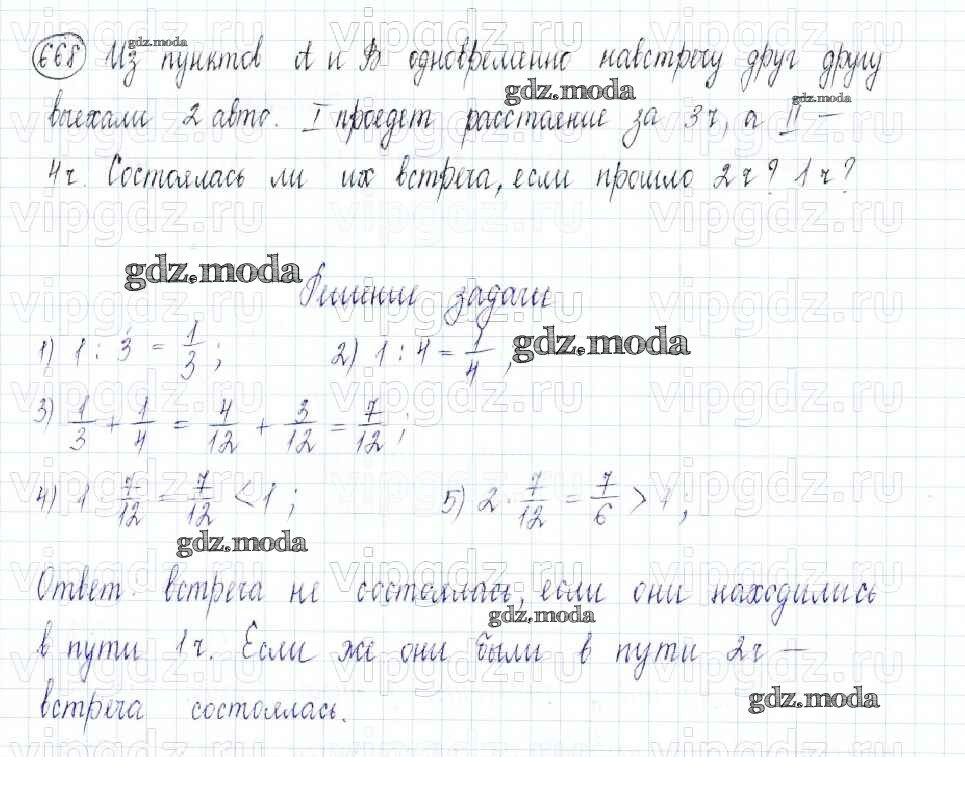 668 Из пунктов A и B одновременно навстречу друг другу
выехали 2 авто. I проедет расстояние за 3ч, а II —
4ч. Состоялась ли их встреча, если прошло 2ч? 1ч?
Решение задачи
1) 1 : 3 = 1/3 ; 2) 1 : 4 = 1/4 ;
3) 1/3 + 1/4 = 4/12 + 3/12 = 7/12 ;
4) 1 · 7/12 = 7/12 < 1 ; 5) 2 · 7/12 = 7/6 > 1 ;
Ответ: встреча не состоялась, если они находились
в пути 1ч. Если же они были в пути 2ч —
встреча состоялась.
gdz.moda
gdz.moda
gdz.moda
gdz.moda
gdz.moda
gdz.moda
gdz.moda
gdz.moda
vipgdz.ru